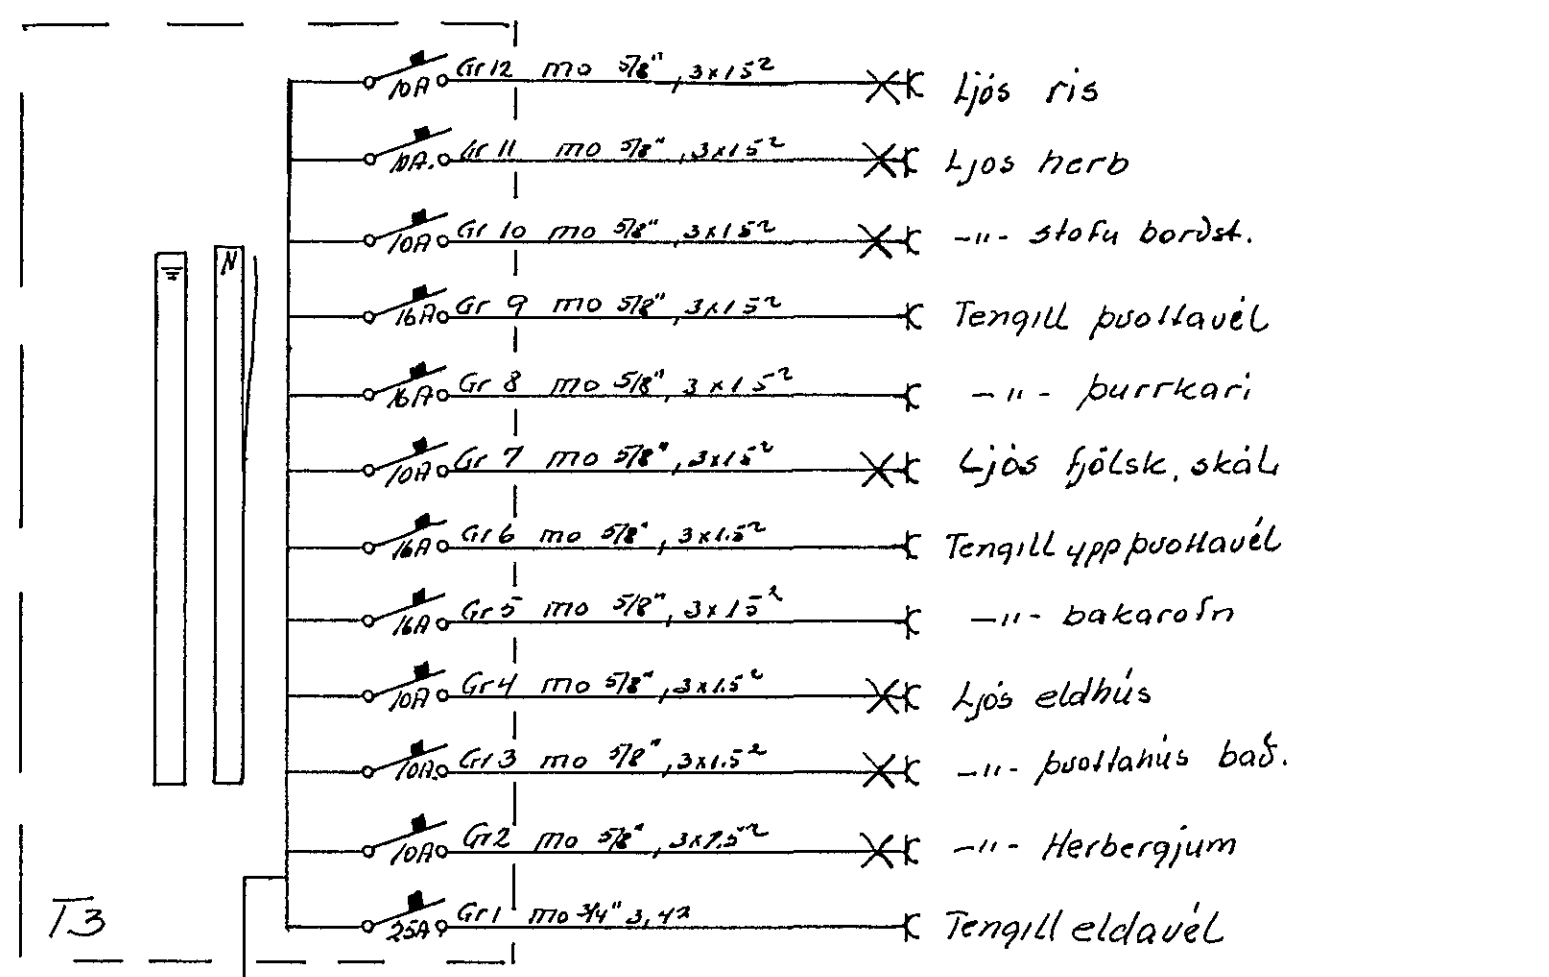 10A Gr 12 mo 5/8", 3x1.5² Ljós ris
10A. Gr 11 mo 5/8", 3x1.5² Ljos herb
10A Gr 10 mo 5/8", 3x1.5² -"- stofu borðst.
N
16A Gr 9 mo 5/8", 3x1.5² Tengill þvottavél
16A Gr 8 mo 5/8", 3x1.5² -"- þurrkari
10A Gr 7 mo 5/8", 3x1.5² Ljós fjölsk. skál
16A Gr 6 mo 5/8", 3x1.5² Tengill uppþvottavél
16A Gr 5 mo 5/8", 3x1.5² -"- bakarofn
10A Gr 4 mo 5/8", 3x1.5² Ljós eldhús
10A. Gr 3 mo 5/8", 3x1.5² -"- þvottahús bað.
10A Gr 2 mo 5/8", 3x1.5² -"- Herbergjum
25A Gr 1 mo 3/4" 3, 42 Tengill eldavél
T3